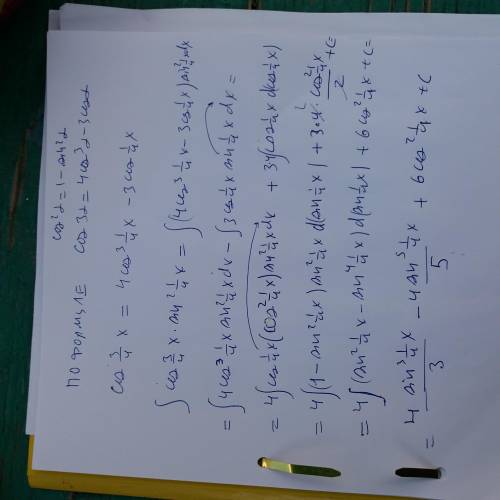 ПО ФОРМУЛЕ cos²α = 1 - sin²α
cos 3α = 4cos³α - 3cosα
cos 3/4 x = 4cos³ 1/4 x - 3cos 1/4 x
∫ cos 3/4 x · sin² 1/4 x = ∫ (4cos³ 1/4 x - 3cos 1/4 x) sin² 1/4 x dx
= ∫ 4cos³ 1/4 x sin² 1/4 x dx - ∫ 3cos 1/4 x sin 1/4 x dx =
= 4 ∫ cos 1/4 x (cos² 1/4 x) sin² 1/4 x dx + 3·4 ∫ cos 1/4 x d(cos 1/4 x)
= 4 ∫ (1 - sin² 1/4 x) sin² 1/4 x d(sin 1/4 x) + 3·4 · cos² 1/4 x / 2 + C =
= 4 ∫ (sin² 1/4 x - sin⁴ 1/4 x) d(sin 1/4 x) + 6cos² 1/4 x + C =
= 4 sin³ 1/4 x / 3 - 4 sin⁵ 1/4 x / 5 + 6cos² 1/4 x + C